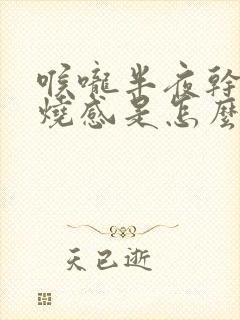 喉嚨半夜幹
燒感是怎麼
天已逝